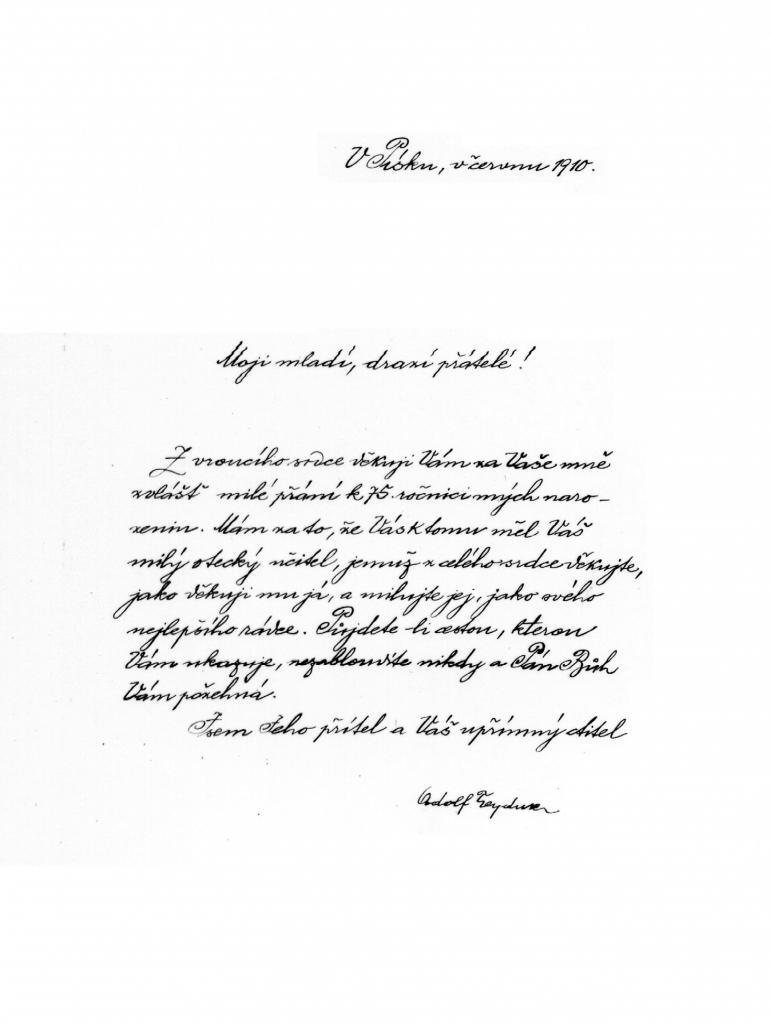 V Písku, v červnu 1910.
Moji mladí, drazí přátelé!
Z vroucího srdce děkuji Vám za Vaše mně
zvlášť milé přání k 75. ročnici mých naro-
zenin. Mám za to, že Vás k tomu měl Váš
milý otecký učitel, jemuž z celého srdce děkujte,
jako děkuji mu já, a milujte jej, jako svého
nejlepšího rádce. Půjdete-li cestou, kterou
Vám ukazuje, nezabloudíte nikdy a Pán Bůh
Vám požehná.
Jsem Jeho přítel a Váš upřímný ctitel
Adolf Heyduk